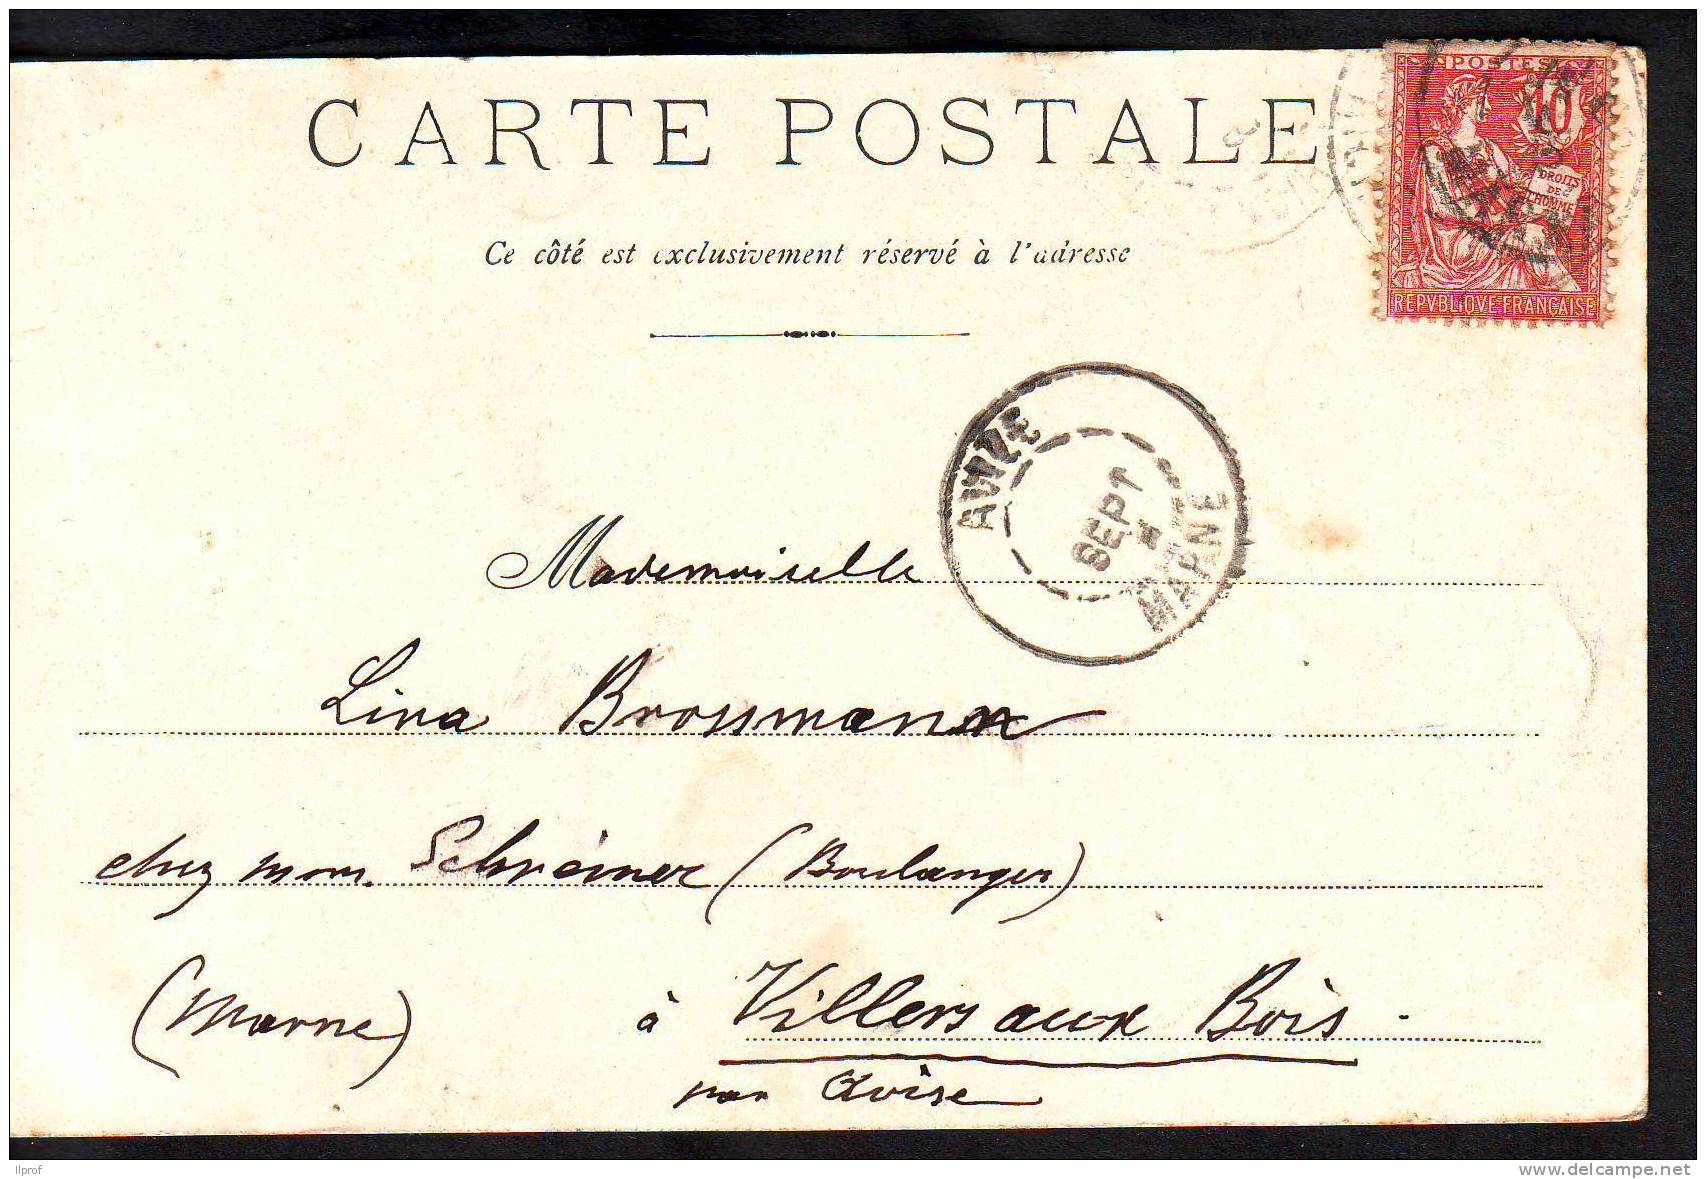 CARTE POSTALE
POSTES
10
DROITS
DE
L'HOMME
REPVBLIQVE FRANÇAISE
Ce côté est exclusivement réservé à l'adresse
AVIZE
SEPT
MARNE
Mademoiselle
Lina Brossmann
chez mon. Schreiner (Boulanger)
(Marne) à Villers aux Bois.
par Avise
Ilprof www.delcampe.net